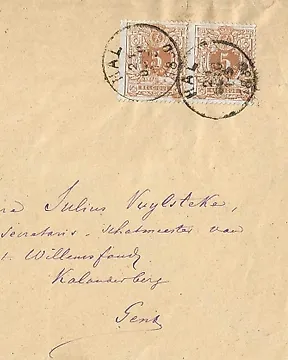 HAL
HAL
5 5
ra Julius Vuylsteke,
secretaris - schatmeester van
t. Willemsfonds
Kalanderberg
Gent